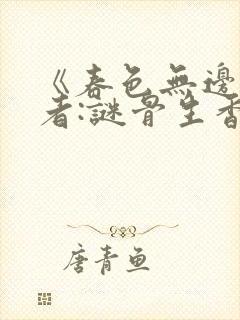 《春色無邊
者:謎骨生香
唐青魚